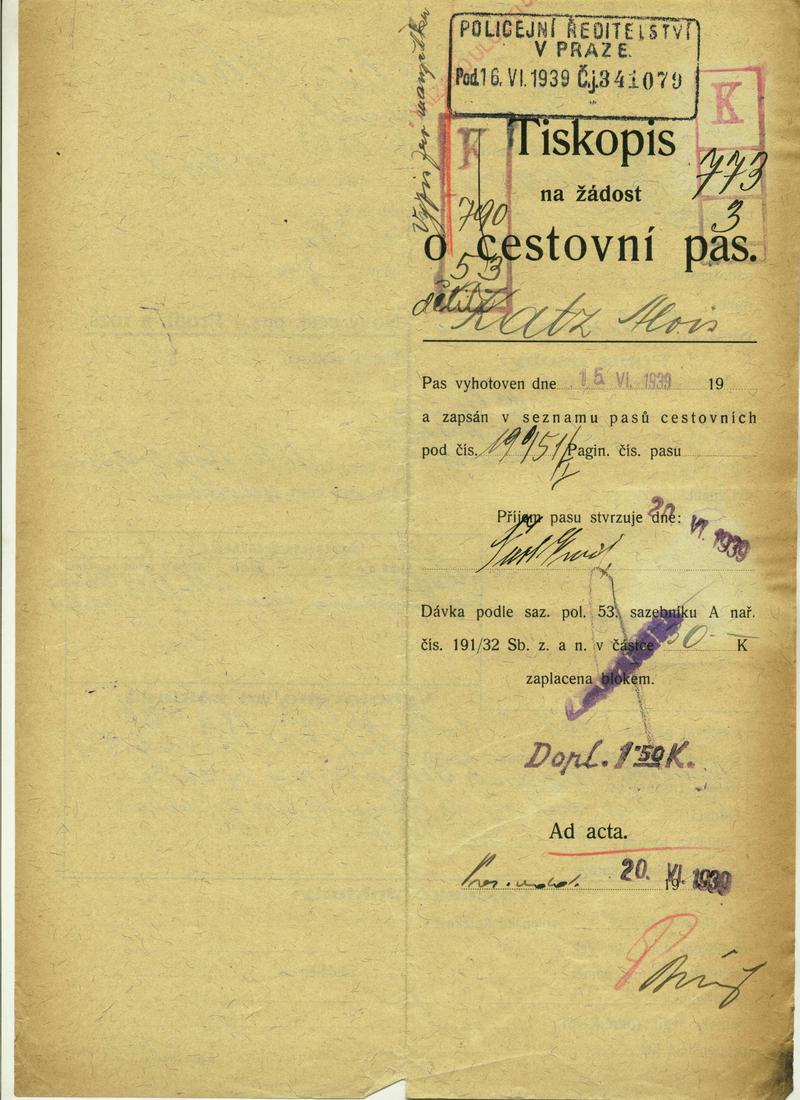 POLICEJNÍ ŘEDITELSTVÍ
V PRAZE
Pod. 16. VI. 1939 Č.j. 341079
K
K
Tiskopis
773
3
na žádost
790
53
o cestovní pas.
Katz Alois
Pas vyhotoven dne 15. VI. 1939 19
a zapsán v seznamu pasů cestovních
pod čís. 19951 Pagin. čís. pasu
Příjem pasu stvrzuje dne: 20. VI. 1939
Dávka podle saz. pol. 53. sazebníku A nař.
čís. 191/32 Sb. z. a n. v částce 30.— K
zaplacena blokem.
Dopl. 1·50 K.
Ad acta.
20. VI. 1939 19